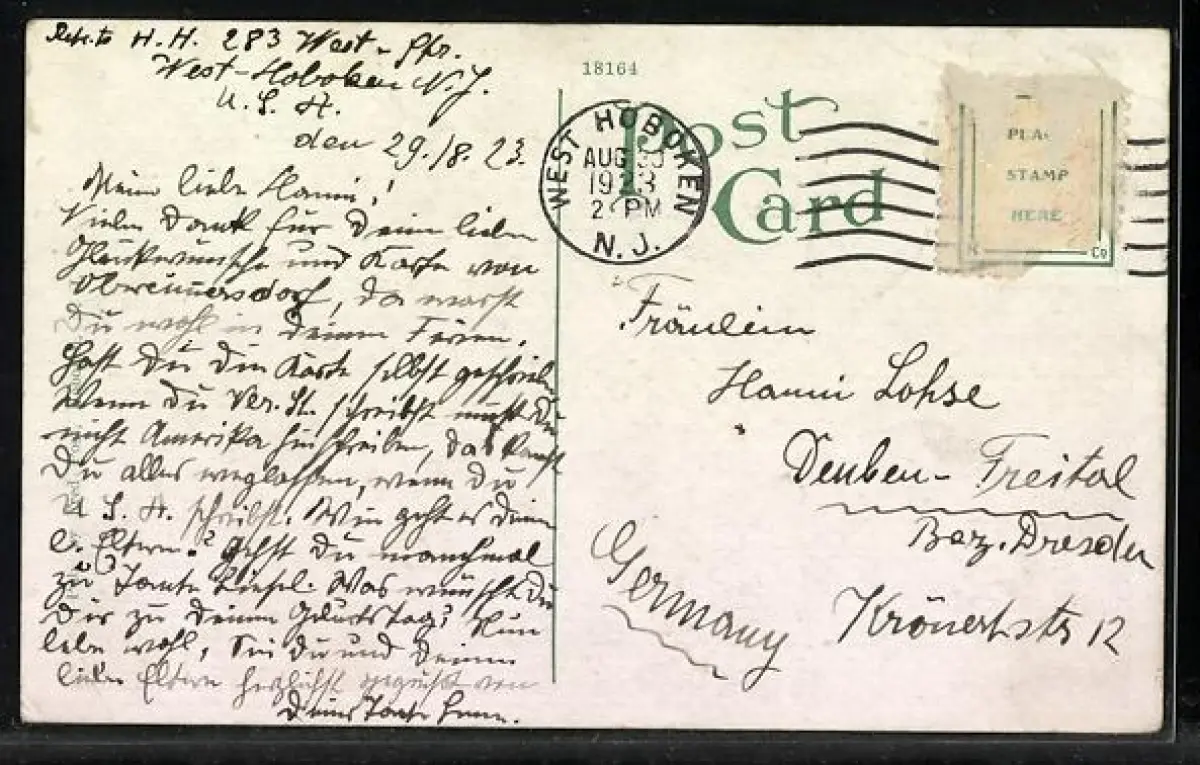 H. H. 283 West-Str.
West-Hoboken N. J.
U. S. A.
den 29./8. 23.
Meine liebe Hanni!
Vielen Dank für Deine lieben
Glückwünsche und Karte von
Obercunnersdorf, da warst
Du wohl in Deinen Ferien.
Hast Du die Karte selbst geschrieben
Wenn Du Ver. St. schreibst mußt Du
nicht Amerika hinschreiben, das kannst
Du alles weglassen, wenn Du
U S. A. schreibst. Wie geht es Deinen
l. Eltern? Gehst Du manchmal
zu Tante Liesel. Was wünscht Du
Dir zu Deinem Geburtstag? Nun
lebe wohl, Sei Du und Deine
lieben Eltern herzlichst gegrüßt von
Deiner Tante
18164
Post
Card
WEST HOBOKEN
AUG 30
1923
2 PM
N. J.
PLACE
STAMP
HERE
Co
Fräulein
Hanni Lohse
Deuben-Freital
Bez. Dresden
Germany
Krönertstr 12